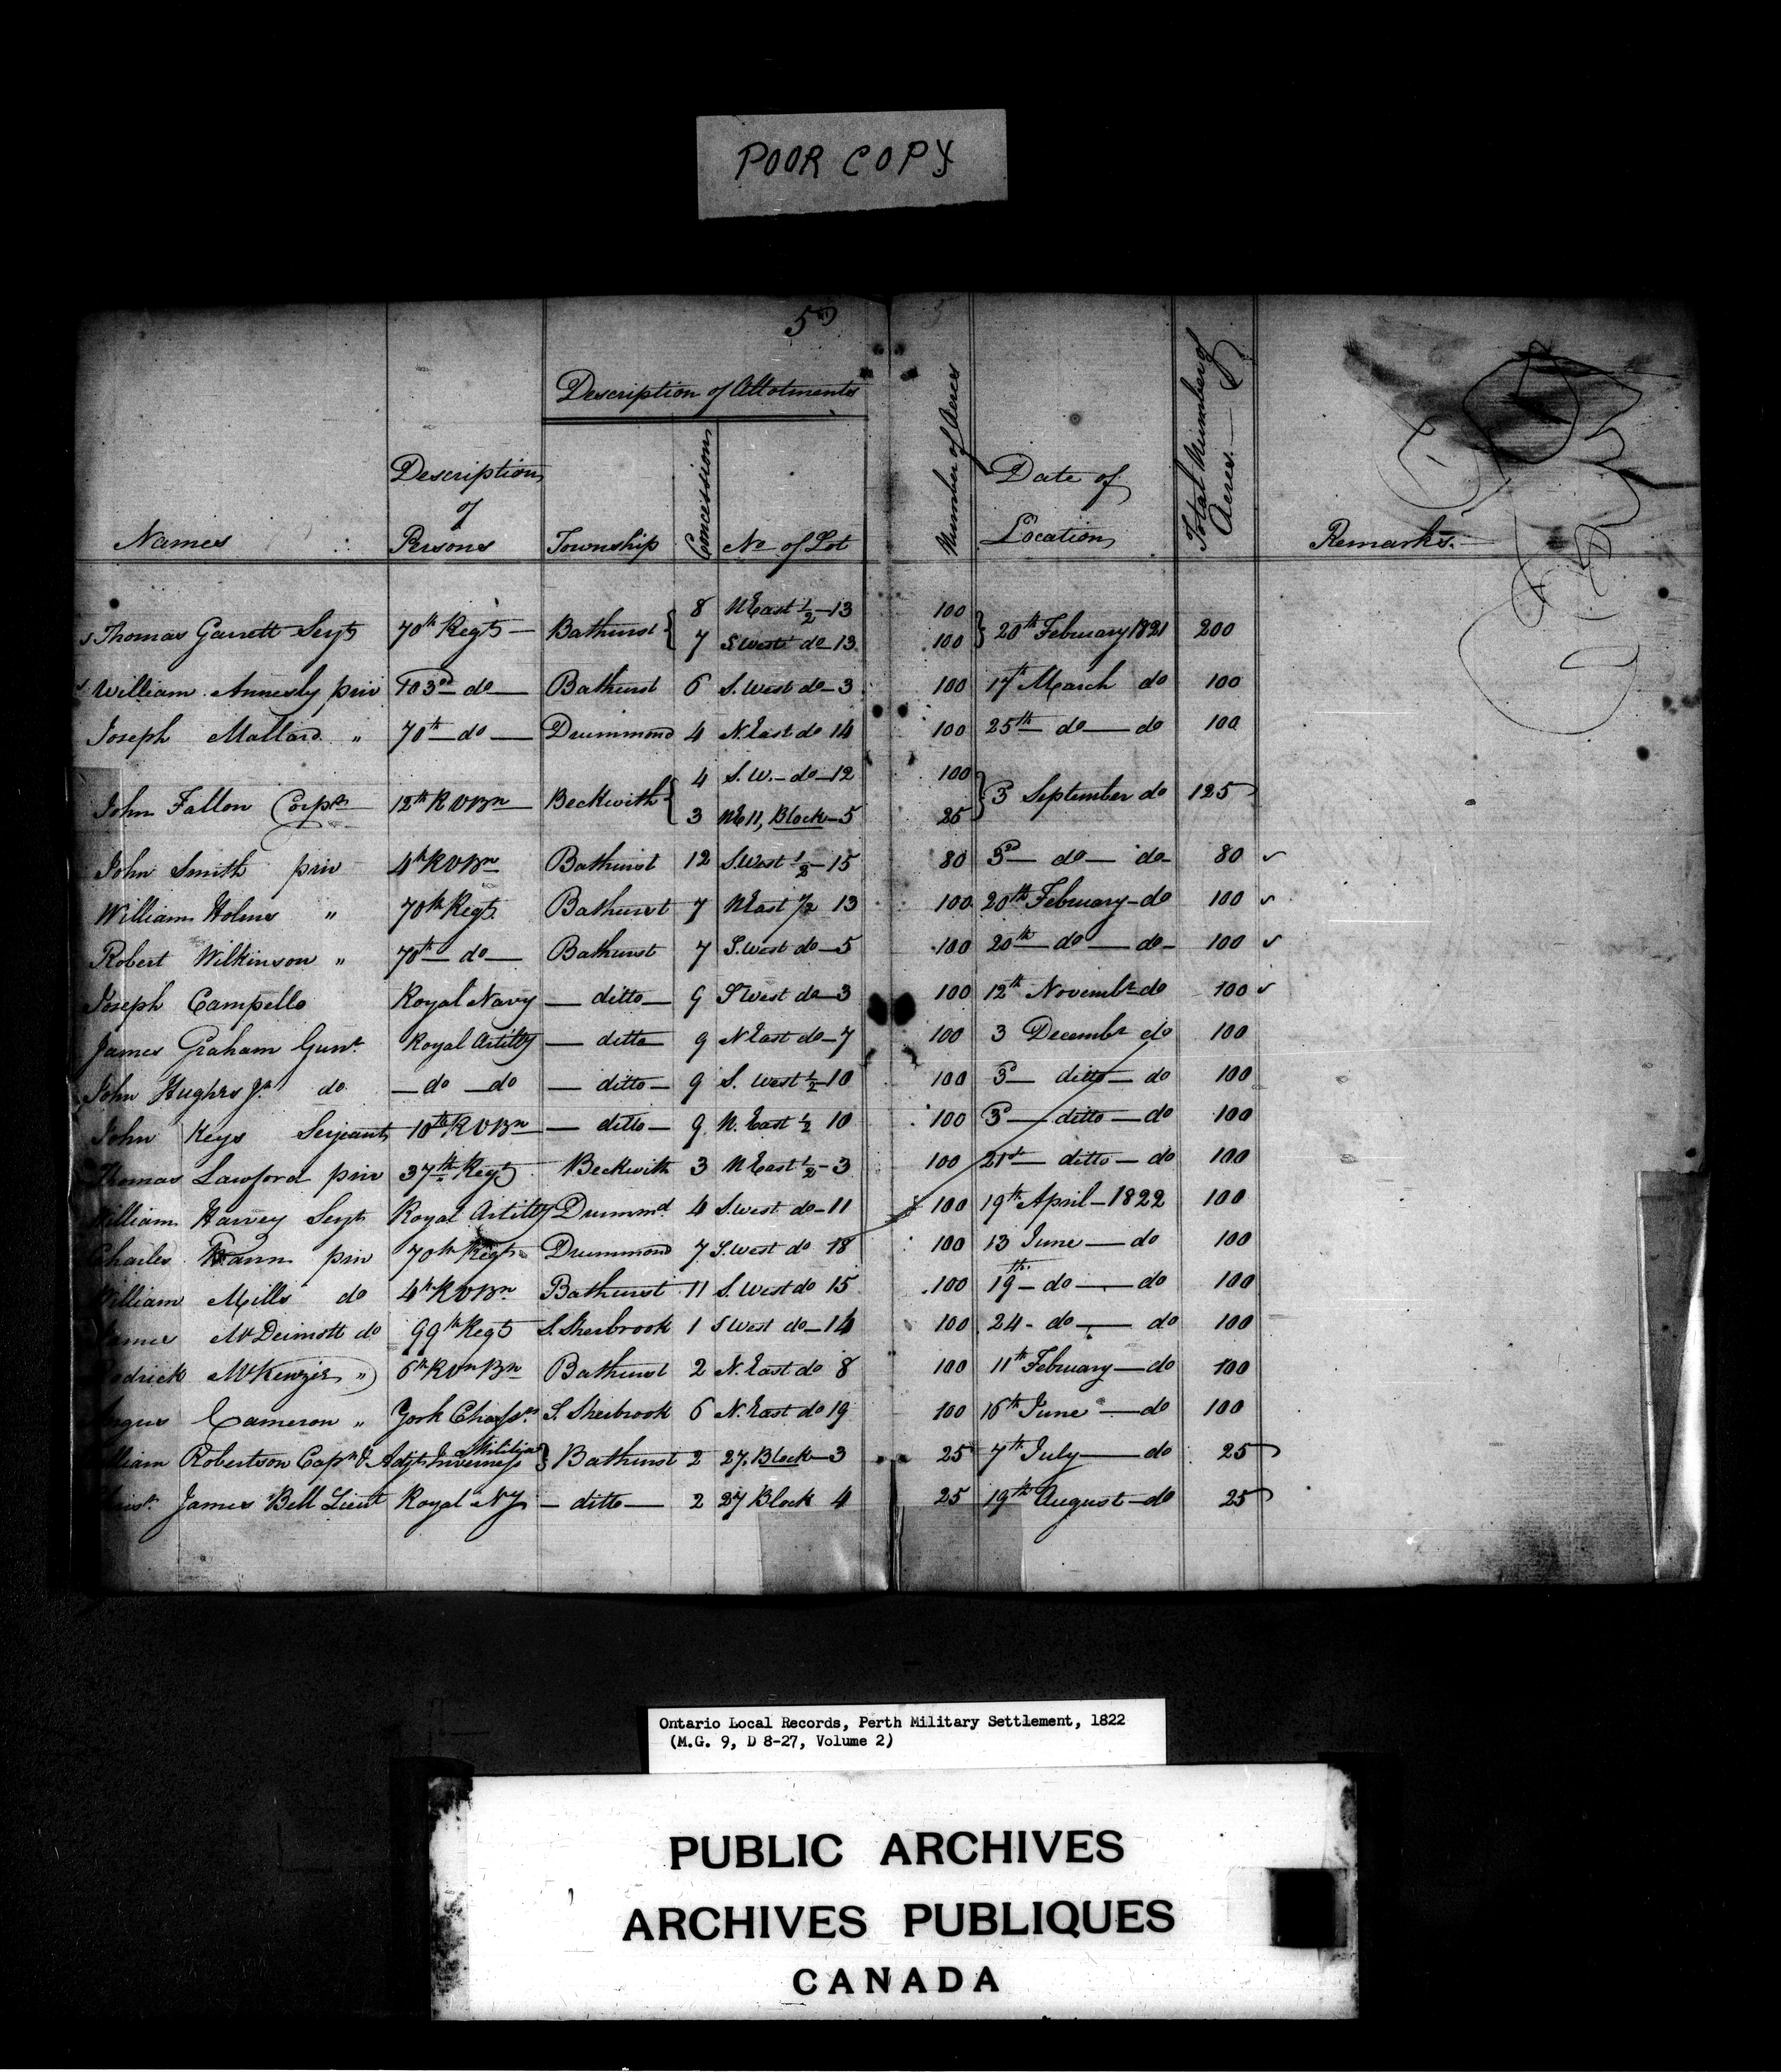 POOR COPY
5
Description of Allotments
Names
Description of Persons
Township
Concession
No of Lot
Number of Acres
Date of Location
Total Number of Acres.
Remarks.
8 N East 1/2 — 13 100
Thomas Garrett Serjt 70th Regt — Bathurst { } 20th February 1821 200
7 S. West do 13 100
William Annesly priv 103rd do — Bathurst 6 S. West do — 3 100 17th March do 100
Joseph Mallard " 70th — do — Drummond 4 N. East do 14 100 25th — do — do 100
4 S. W. — do — 12 100
John Fallon Corpl 12th R V Bn — Beckwith { } 3 September do 125
3 NE 11, Block — 5 25
John Smith priv 4th R V Bn Bathurst 12 S. West 1/2 — 15 80 3d — do — do — 80
William Holmes " 70th Regt Bathurst 7 N East 1/2 13 100 20th February — do 100
Robert Wilkinson " 70th — do — Bathurst 7 S. West do — 5 100 20th — do — do — 100
Joseph Campello Royal Navy — ditto — 9 S West do — 3 100 12th Novembr do 100
James Graham Gunr Royal Artilly — ditto 9 N East do — 7 100 3 Decembr do 100
John Hughes Jr do — do — do — ditto — 9 S. West 1/2 — 10 100 3d — ditto — do 100
John Keys Serjeant 10th R V Bn — ditto — 9 N. East 1/2 10 100 3d — ditto — do 100
Thomas Lawford priv 37th Regt Beckwith 3 N East 1/2 — 3 100 21st — ditto — do 100
William Harvey Serjt Royal Artilly Drummd 4 S. West do — 11 100 19th April — 1822 100
Charles priv 70th Regt Drummond 7 S. West do 18 100 13 June — do 100
William Mills do 4th R V Bn Bathurst 11 S. West do 15 100 19th — do — do 100
McDermott do 99th Regt S. Sherbrook 1 S West do — 14 100 24 — do — do 100
McKenzie " 6th R Vn Bn Bathurst 2 N. East do 8 100 11th February — do 100
Cameron " York Chassrs S. Sherbrook 6 N. East do 19 100 16th June — do 100
Militia
William Robertson Capn & Adjt Inverness } Bathurst 2 27, Block — 3 25 7th July — do 25
James Bell Lieut Royal Ny — ditto — 2 27 Block 4 25 19th August — do 25
Ontario Local Records, Perth Military Settlement, 1822
(M.G. 9, D 8-27, Volume 2)
PUBLIC ARCHIVES
ARCHIVES PUBLIQUES
CANADA